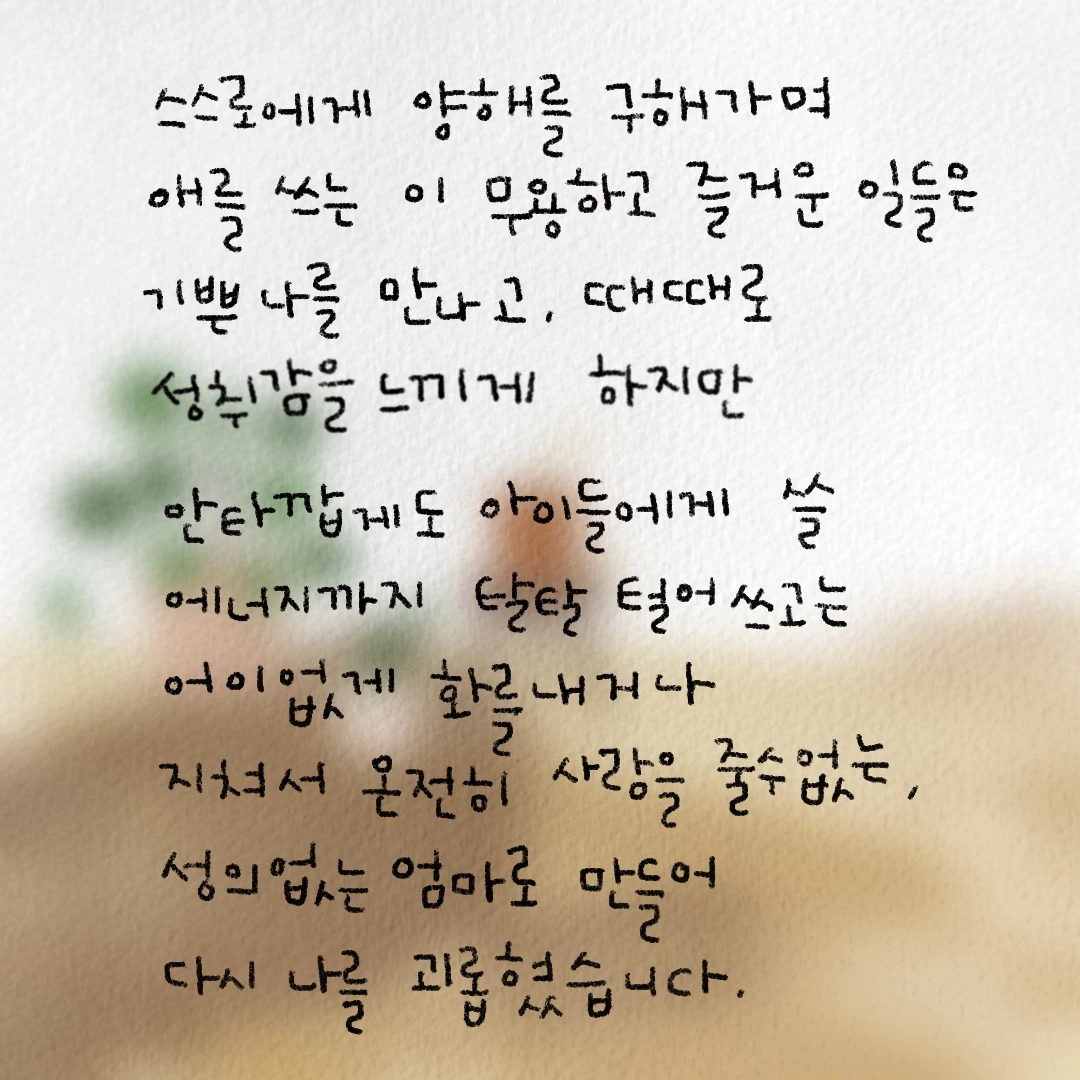 스스로에게 양해를 구해가며
애를 쓰는 이 무용하고 즐거운 일들은
기쁜 나를 만나고, 때때로
성취감을 느끼게 하지만
안타깝게도 아이들에게 쓸
에너지까지 탈탈 털어 쓰고는
어이없게 화를 내거나
지쳐서 온전히 사랑을 줄 수 없는,
성의없는 엄마로 만들어
다시 나를 괴롭혔습니다.